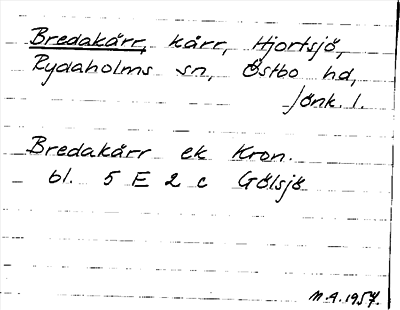 Bredakärr, kärr, Hjortsjö,
Rydaholms sn, Östbo hd,
Jönk. l.
Bredakärr ek Kron.
bl. 5 E 2 c Gölsjö
M.A. 1957.